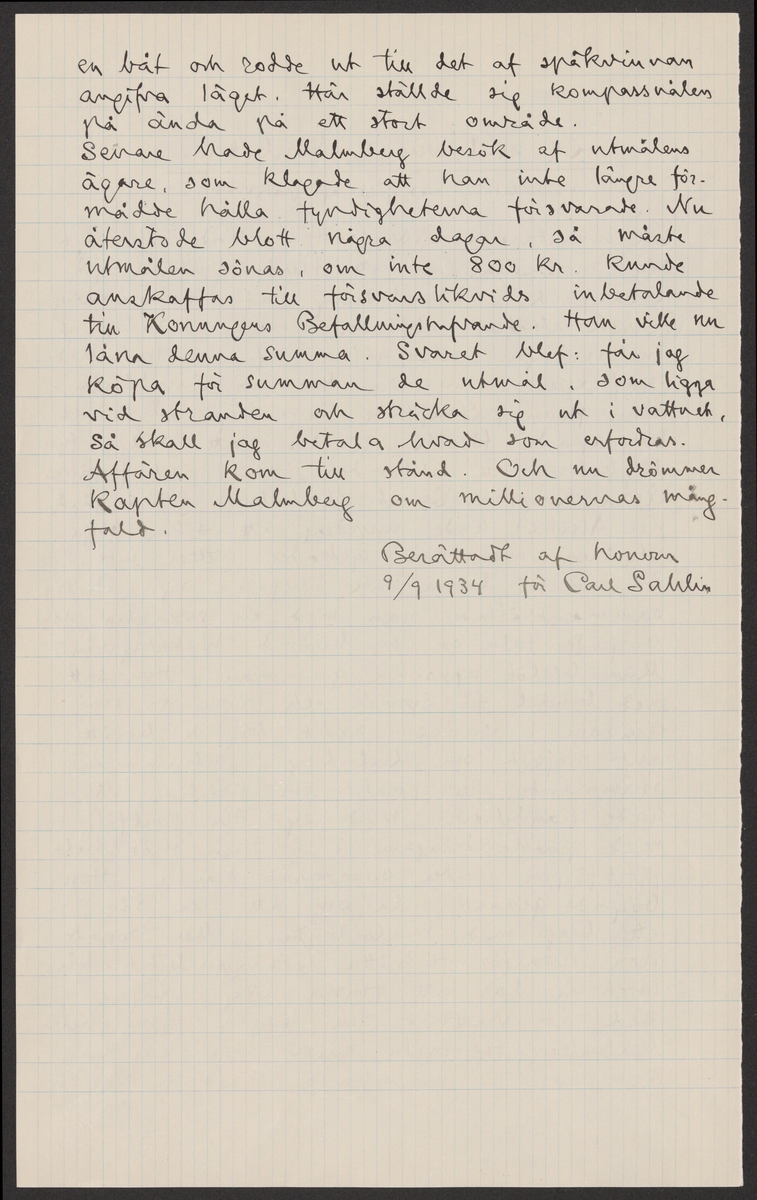 en båt och rodde ut till det af spåkvinnan
angifna läget. Här ställde sig kompassnålen
på ända på ett stort område.
Senare hade Malmberg besök af utmålens
ägare, som klagade att han inte längre för-
mådde hålla fyndigheterna försvarade. Nu
återstode blott några dagar, så måste
utmålen sönas, om inte 800 kr. kunde
anskaffas till försvarslikvids inbetalande
till Konungens Befallningshafvande. Han ville nu
låna denna summa. Svaret blef: får jag
köpa för summan de utmål, som ligga
vid stranden och sträcka sig ut i vattnet,
så skall jag betala hvad som erfordras.
Affären kom till stånd. Och nu drömmer
Kapten Malmberg om millionernas mång-
fald.
Berättadt af honom
9/9 1934 för Carl Sahlin